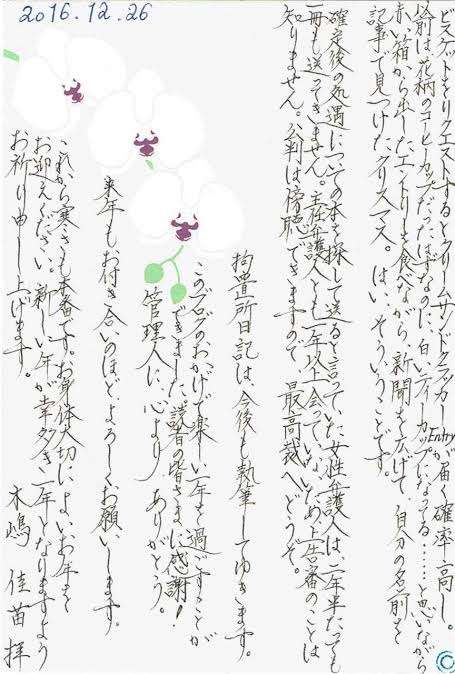 2016.12.26
ビスケットをリクエストするとクリームサンドクラッカーEntryが届く確率高し。
以前は花柄のコーヒーカップだったはずなのに、白いティーカップになってる……と思いながら
赤い箱から出したエントリーを食べながら、新聞を広げて、自分の名前を
記事で見つけたクリスマス。はい、そういうことです。
確定後の処遇についての本を探して送ると言っていた女性弁護人は、二年半たっても
一冊も送ってきません。主任弁護人とも一年以上会っていないため、上告審のことは
知りません。公判は傍聴できますので、最高裁へどうぞ。
拘置所日記は、今後も執筆してゆきます。
このブログのおかげで楽しい一年を過ごすことが
できました。読者の皆さまに感謝!
管理人に、心より ありがとう。
来年もお付き合いのほど、よろしくお願いします。
これから寒さも本番です。お身体大切に、よいお年を
お迎えください。新しい年が幸多き一年となりますよう
お祈り申し上げます。
木嶋 佳苗 拝
©